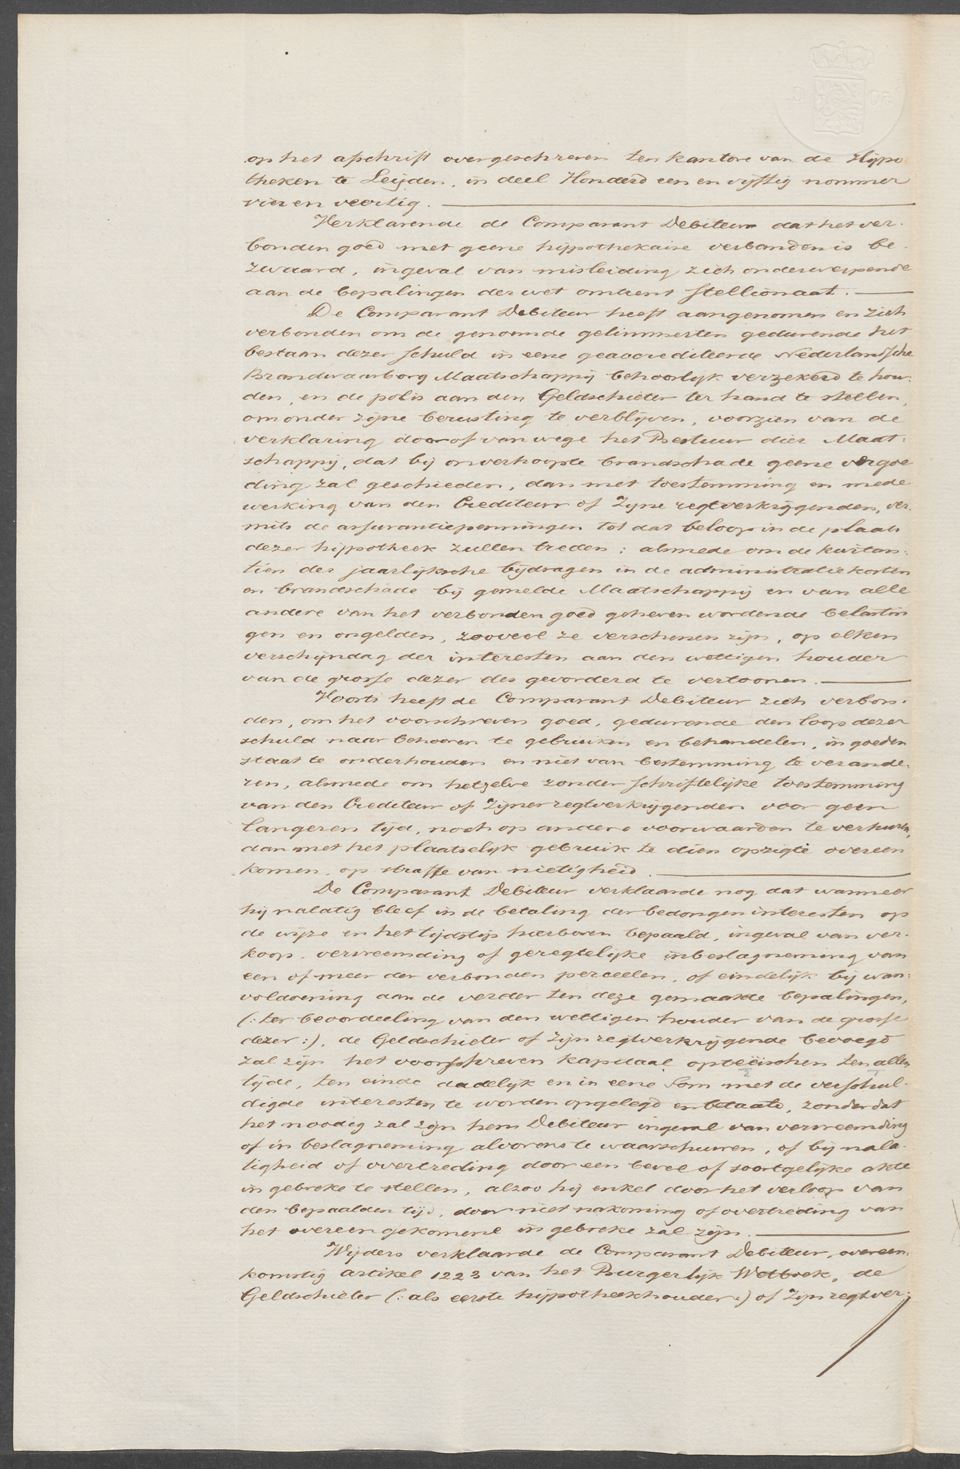 op het afschrift overgeschreven ten kantore van de Hypo
theken te Leijden, in deel Honderd een en vijftig nommer
vier en veertig.
Verklarende de Comparant Debiteur dat het ver-
bonden goed met geene hijpothekaire verbanden is be-
zwaard, ingeval van misleiding zich onderwerpende
aan de bepalingen der wet omtrent stellionaat.
De Comparant Debiteur heeft aangenomen en zich
verbonden om de genoemde getimmerten gedurende het
bestaan dezer schuld in eene geaccrediteerde Nederlandsche
Brandwaarborg Maatschappij behoorlijk verzekerd te hou-
den, en de polis aan den Geldschieter ter hand te stellen,
om onder zijne berusting te verblijven, voorzien van de
verklaring door of van wege het Bestuur dier Maat-
schappij, dat bij onverhoopte brandschade geene vergoe
ding zal geschieden, dan met toestemming en mede
werking van den Crediteur of Zijne regtverkrijgenden, ver-
mits de assurantiepenningen tot dat beloop in de plaats
dezer hijpotheek zullen treden; alsmede om de kwitan-
tien der jaarlijksche bijdragen in de administratiekosten
en brandschade bij gemelde Maatschappij en van alle
andere van het verbonden goed geheven wordende belastin
gen en ongelden, zooveel ze verschenen zijn, op elken
verschijndag der interesten aan den wettigen houder
van de grosse dezer des gevorderd te vertoonen.
Voorts heeft de Comparant Debiteur zich verbon-
den, om het voorschreven goed, gedurende den loop dezer
schuld naar behooren te gebruiken en behandelen, in goeden
staat te onderhouden en niet van bestemming te verande-
ren, alsmede om hetzelve zonder schriftelijke toestemming
van den Crediteur of Zijner regtverkrijgenden voor geen
langeren tijd, noch op andere voorwaarden te verhuren,
dan met het plaatselijk gebruik te dien opzigte overeen
komen, op straffe van nietigheid.
De Comparant Debiteur verklaarde nog dat wanneer
hij nalatig bleef in de betaling der bedongen interesten op
de wijze en het tijdstip hierboven bepaald, ingeval van ver-
koop, vervreemding of geregtelijke inbeslagneming van
een of meer der verbonden perceelen, of eindelijk bij wan-
voldoening aan de verder ten deze gemaakte bepalingen,
(: ter beoordeeling van den wettigen houder van de grosse
dezer :), de Geldschieter of Zijn regtverkrijgende bevoegd
zal zijn het voorschreven kapitaal opteëischen ten allen
tijde, ten einde dadelijk en in eene Som met de verschul-
digde interesten te worden opgelegd en betaald, zonder dat
het noodig zal zijn hem Debiteur ingeval van vervreemding
of in beslagneming alvorens te waarschuwen, of bij nala-
tigheid of overtreding door een bevel of soortgelijke akte
in gebreke te stellen, alzoo hij enkel door het verloop van
den bepaalden tijd, door niet nakoming of overtreding van
het overeengekomene in gebreke zal zijn.
Wijders verklaarde de Comparant Debiteur, overeen-
komstig artikel 1223 van het Burgerlijk Wetboek, de
Geldschieter (: als eerste hijpotheekhouder :) of Zijn regtver-